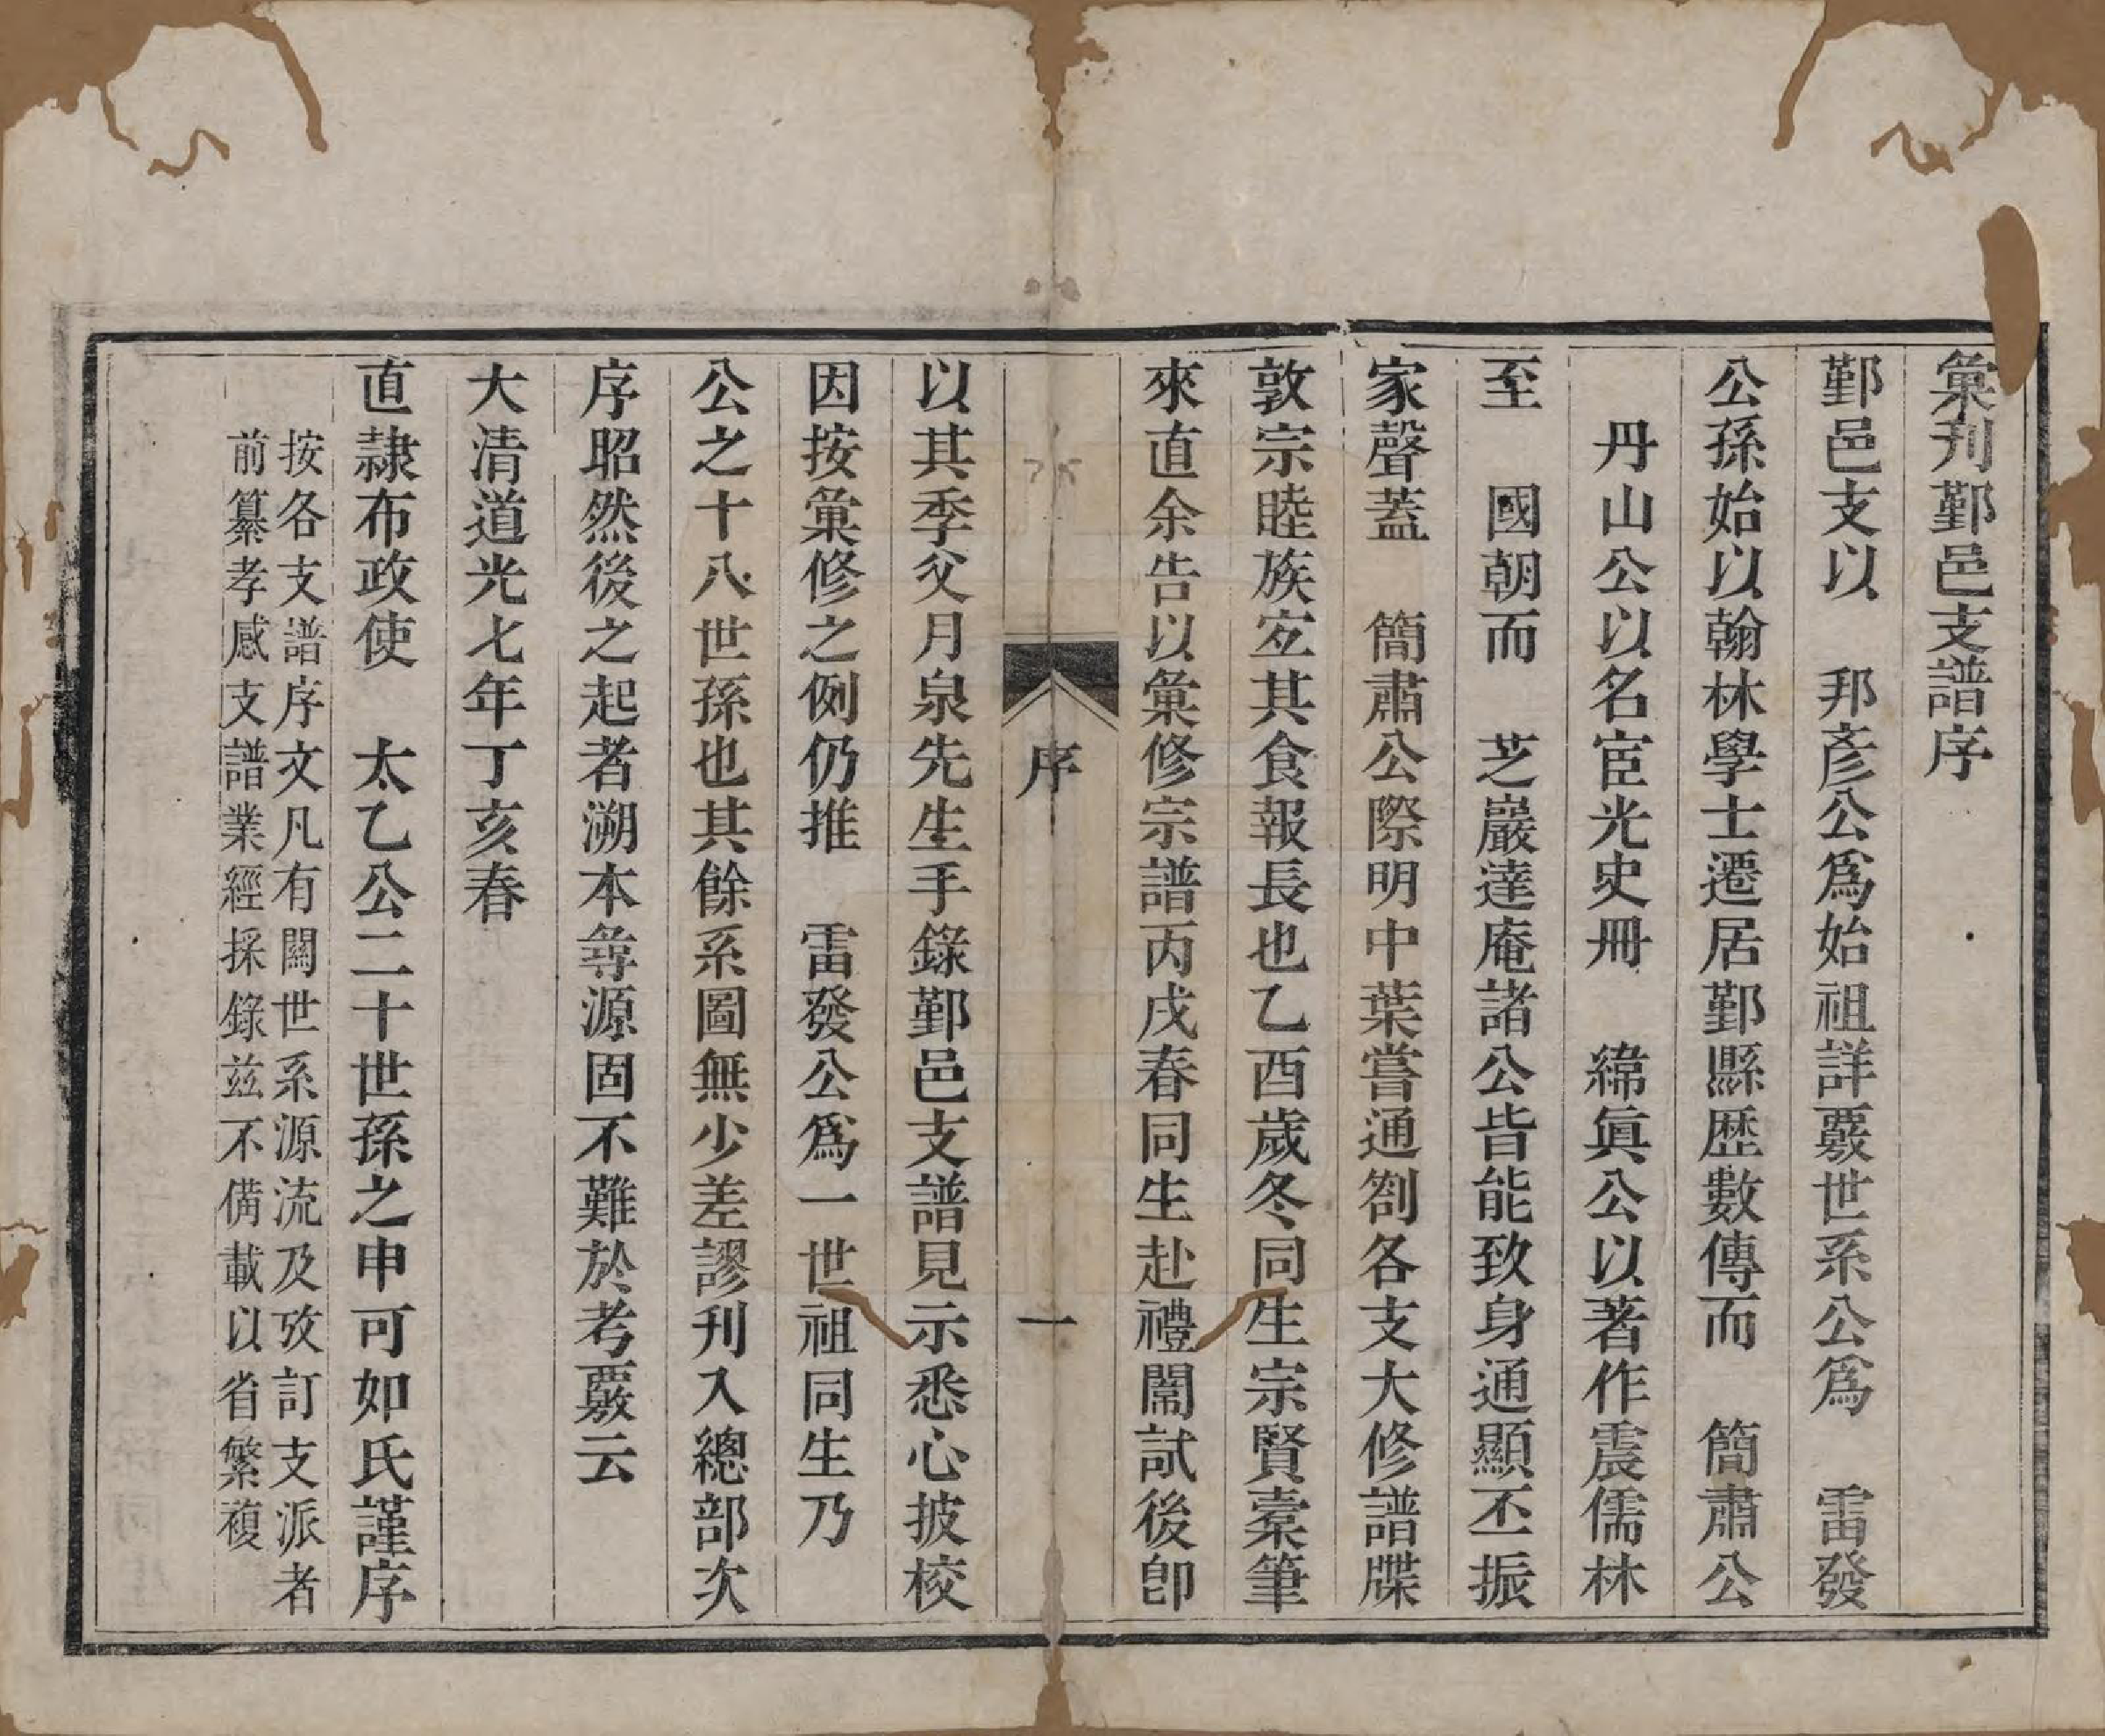 彙刋鄞邑支譜序
鄞邑支以　邦彥公爲始祖詳覈世系公爲　雷發
公孫始以翰林學士遷居鄞縣歷數傳而　簡肅公
　丹山公以名宦光史冊　緯眞公以著作震儒林
至　國朝而　芝巖達庵諸公皆能致身通顯丕振
家聲蓋　簡肅公際明中葉嘗通劄各支大修譜牒
敦宗睦族宜其食報長也乙酉歲冬同生宗賢橐筆
來直余告以彙修宗譜丙戌春同生赴禮闈試後卽
序　一
以其季父月泉先生手錄鄞邑支譜見示悉心披校
因按彙修之例仍推　雷發公爲一世祖同生乃
公之十八世孫也其餘系圖無少差謬刋入總部次
序昭然後之起者溯本尋源固不難於考覈云
大清道光七年丁亥春
直隷布政使　太乙公二十世孫之申可如氏謹序
按各支譜序文凡有關世系源流及攷訂支派者
前纂孝感支譜業經採錄茲不備載以省繁複